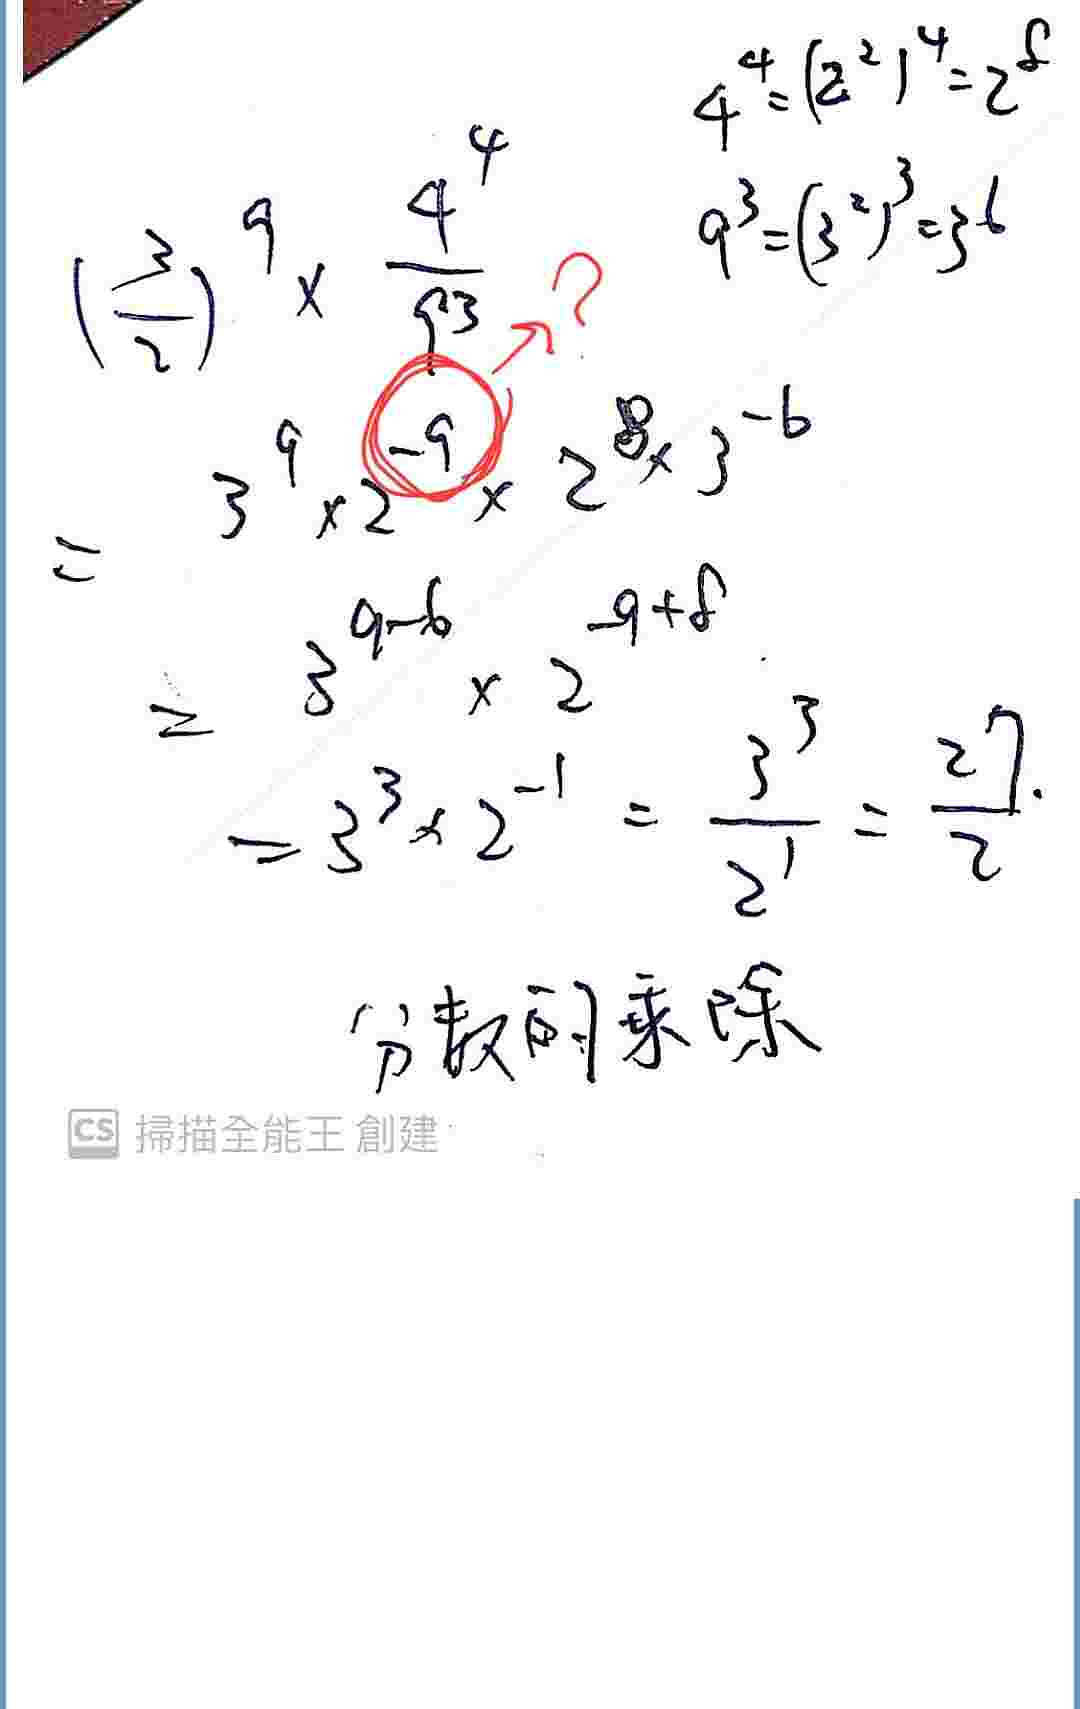 4⁴=(2²)⁴=2⁸
9³=(3²)³=3⁶
(3/2)⁹ × 4⁴/9³
?
= 3⁹ × 2⁻⁹ × 2⁸ × 3⁻⁶
= 3⁹⁻⁶ × 2⁻⁹⁺⁸
= 3³ × 2⁻¹ = 3³/2¹ = 27/2.
分數的乘除
CS 掃描全能王 創建